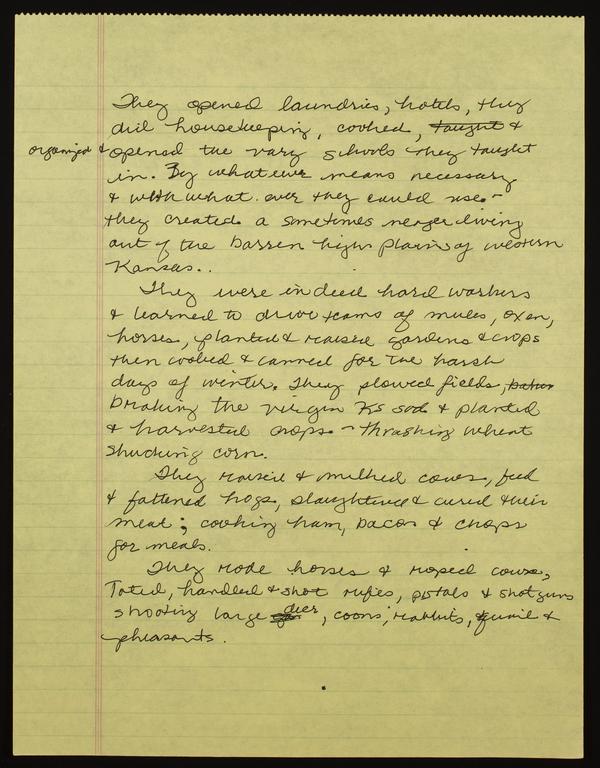 They opened laundries, hotels, they
did housekeeping, cooked, taught &
organized & opened the very schools they taught
in. By whatever means necessary
& with what ever they could use -
they created a sometimes meager living
out of the barren high plains of western
Kansas..
They were indeed hard workers
& learned to drive teams of mules, oxen,
horses, planted & raised gardens & crops
then cooked & canned for the harsh
days of winter. They plowed fields,
braking the virgin Ks sod & planted
& harvested crops - thrashing wheat
shucking corn.
They raised & milked cows, fed
& fattened hogs, slaughtered & cured their
meat; cooking ham, bacon & chops
for meals.
They rode horses & roped cows,
Toted, handled & shot rifles, pistols & shotguns
shooting large deer, coons, rabbits, quail &
pheasants.